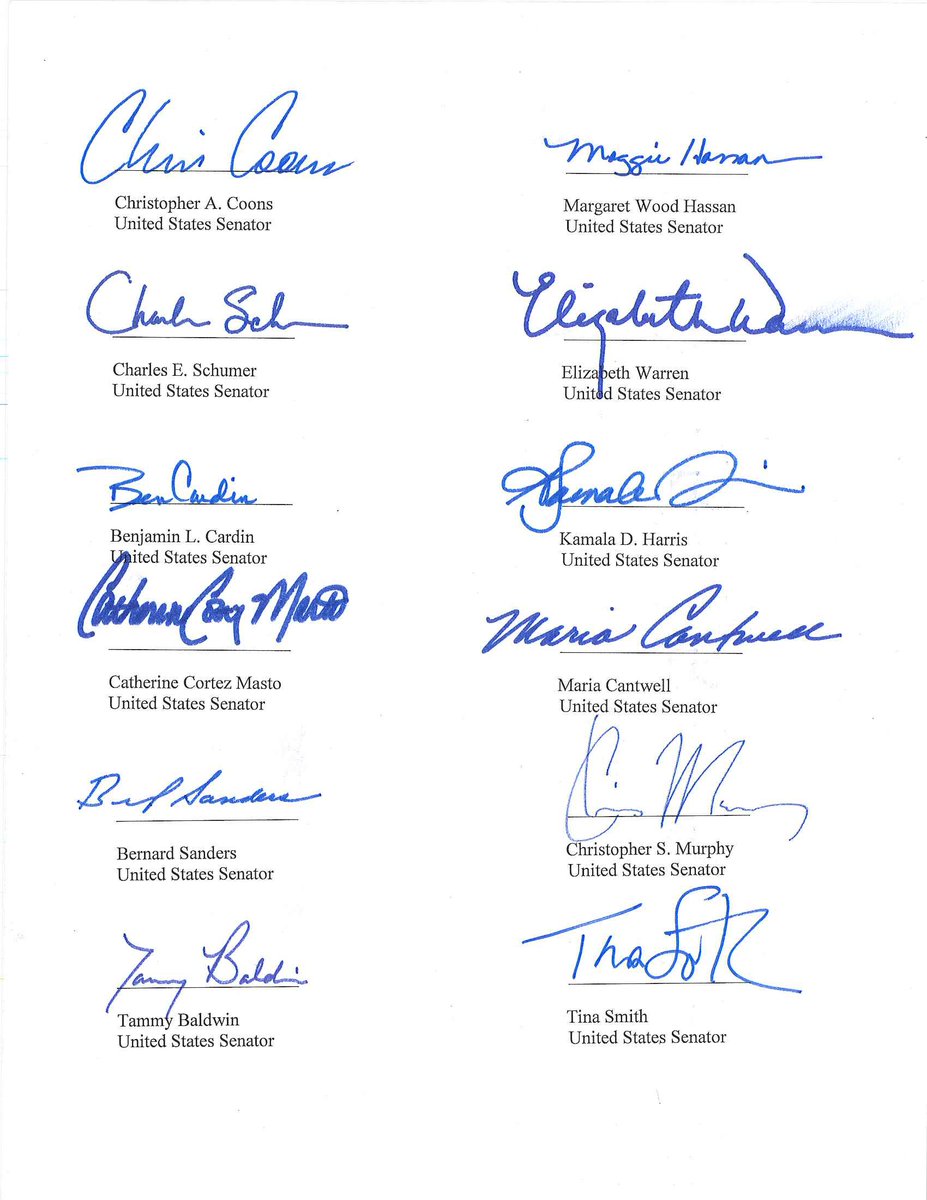 Chris Coons
Christopher A. Coons
United States Senator
Maggie Hassan
Margaret Wood Hassan
United States Senator
Charles Sch
Charles E. Schumer
United States Senator
Elizabeth Warren
Elizabeth Warren
United States Senator
Ben Cardin
Benjamin L. Cardin
United States Senator
Kamala
Kamala D. Harris
United States Senator
Catherine Cortez Masto
Catherine Cortez Masto
United States Senator
Maria Cantwell
Maria Cantwell
United States Senator
Sanders
Bernard Sanders
United States Senator
Chris Murphy
Christopher S. Murphy
United States Senator
Tammy Baldwin
Tammy Baldwin
United States Senator
Tina Smith
Tina Smith
United States Senator